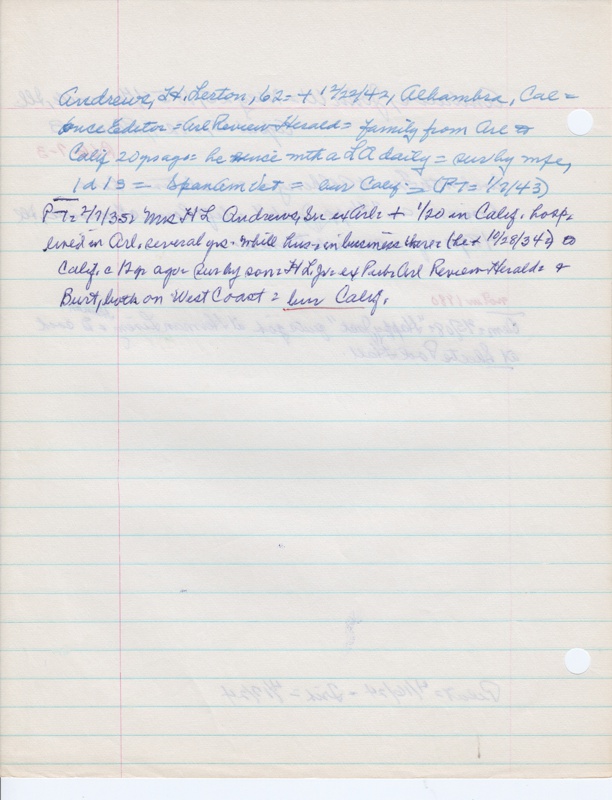 Andrews, H. Lerton, 62 = + 12/22/42, Alhambra, Cal =
once Editor = Arl Review Herald = family from Arl to
Calif 20 yrs ago = he since with a LA daily = sur by wife,
1 d 1 s = Span Am Vet = bur Calif = (PT = 1/2/43)
PT = 2/7/35: Mrs H L Andrews, Sr. ex Arl = + 1/20 in Calif. hosp.
lived in Arl. several yrs. while hus. in business there = (he + 10/28/34) to
Calif. c 12 yr ago = sur by son = H L Jr. = ex Pub = Arl Review-Herald = &
Burt, both on West Coast = bur Calif.